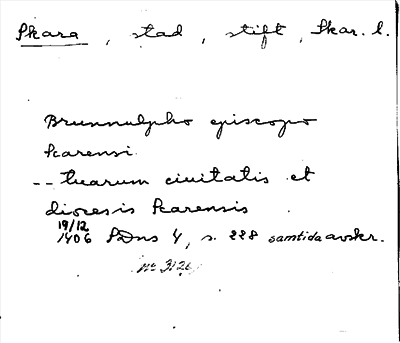 Skara, stad, stift, Skar. l.
Brunnulpho episcopo
scarensi
-- tuarum ciuitatis et
diocesis scarensis
19/12
1406 SDns 4, s. 228 samtida avskr.
nr 3126